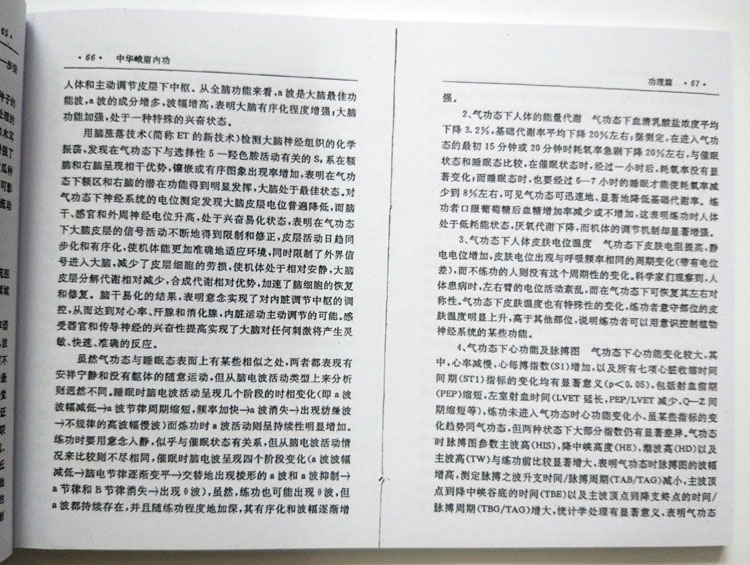 65·
一步探
种子的
·66· 中华峨眉内功
人体和主动调节皮层下中枢。从全脑功能来看,a波是大脑最佳功
能波,a波的成分增多,波幅增高,表明大脑有序化程度增强;大脑
功能加强,处于一种特殊的兴奋状态。
用脑涨落技术(简称ET的新技术)检测大脑神经组织的化学
振荡,发现在气功态下与选择性5—羟色胺活动有关的S,系在额
脑和右脑呈现相干优势,镶嵌或有序图象出现率增加,表明在气功
态下额区和右脑的潜在功能得到明显发挥,大脑处于最佳状态。对
气功态下神经系统的电位测定发现大脑皮层电位普遍降低,而脑
干、感官和外周神经电位升高,处于兴奋易化状态,表明在气功态
下大脑皮层的信号活动不断地得到限制和修正,皮层活动日趋同
步化和有序化,使机体能更加准确地适应环境,同时限制了外界信
号进入大脑,减少了皮层细胞的劳损,使机体处于相对安静,大脑
皮层分解代谢相对减少,合成代谢相对优势,加速了脑细胞的恢复
和修复。脑干易化的结果,表明意念实现了对内脏调节中枢的调
控,从而达到对心率、汗腺和消化腺,内脏运动主动调节的可能。感
受器官和传导神经的兴奋性提高实现了大脑对任何刺激将产生灵
敏、快速、准确的反应。
虽然气功态与睡眠态表面上有某些相似之处,两者都表现有
安祥宁静和没有躯体的随意运动,但从脑电波活动类型上来分析
则迥然不同。睡眠时脑电波活动呈现几个阶段的时相变化(即a波
波幅减低→a波节律周期缩短,频率加快→a波消失→出现纺缍波
→不规律的高波幅慢波)而炼功时a波活动则呈持续性明显增加。
练功时要用意念入静,似乎与催眠状态有关系,但从脑电波活动情
况来比较则不尽相同,催眠时脑电波呈现四个阶段变化(a波波幅
减低→脑电节律逐渐变平→交替地出现梭形的a波和a波抑制→
a节律和B节律消失→出现θ波),虽然,练功也可能出现θ波,但
a波都持续存在,并且随练功程度地加深,其有序化和波幅逐渐增
功理篇 ·67·
强。
2、气功态下人体的能量代谢 气功态下血清乳酸盐浓度平均
下降3.2%,基础代谢率平均下降20%左右;据测定,在进入气功
态的最初15分钟或20分钟时耗氧率急剧下降20%左右,与催眠
状态和睡眠态比较,在催眠状态时,经过一小时后,耗氧率没有显
著变化;而睡眠态时,也要经过6—7小时的睡眠才能使耗氧率减
少到8%左右,可见气功态可迅速地、显著地降低基础代谢率。练
功者口服葡萄糖后血糖增加率减少或不增加,这表明练功时人体
处于低耗能状态,厌氧代谢下降,而机体的调节机制却显著增强。
3、气功态下人体皮肤电位温度 气功态下皮肤电阻提高,静
电电位增加,皮肤电位出现与呼吸频率相同的周期变化(带有电位
差),而不练功的人则没有这个周期性的变化。科学家们观察到,人
体患病时,左右臂的电位活动紊乱,而在气功态下可恢复其左右对
称性。气功态下皮肤温度也有特殊性的变化,练功者意守部位的皮
肤温度明显上升,高于其他部位,说明练功者可以用意识控制植物
神经系统的某些功能。
4、气功态下心功能及脉搏图 气功态下心功能变化较大,其
中,心率减慢,心每搏指数(S1)增加,以及所有七项心脏收缩时间
间期(ST1)指标的变化均有显著意义(p<0.05),包括射血前期
(PEP)缩短,左室射血时间(LVET延长,PEP/LVET减少、Q—Z间
期缩短等),练功未进入气功态时心功能变化小,虽某些指标的变
化趋势同气功态,但两种状态下大部分指数仍有显著差异。气功态
时脉搏图参数主波高(HIS),降中峡高度(HE),潮波高(HD)以及
主波高(TW)与练功前比较显著增大,表明气功态时脉搏图的波幅
增高,测定脉搏之波升支时间/脉搏周期(TAB/TAG)减小,主波顶
点到降中峡谷底的时间(TBE)以及主波顶点到降支终点的时间/
脉搏周期(TBG/TAG)增大,统计学处理有显著意义,表明气功态